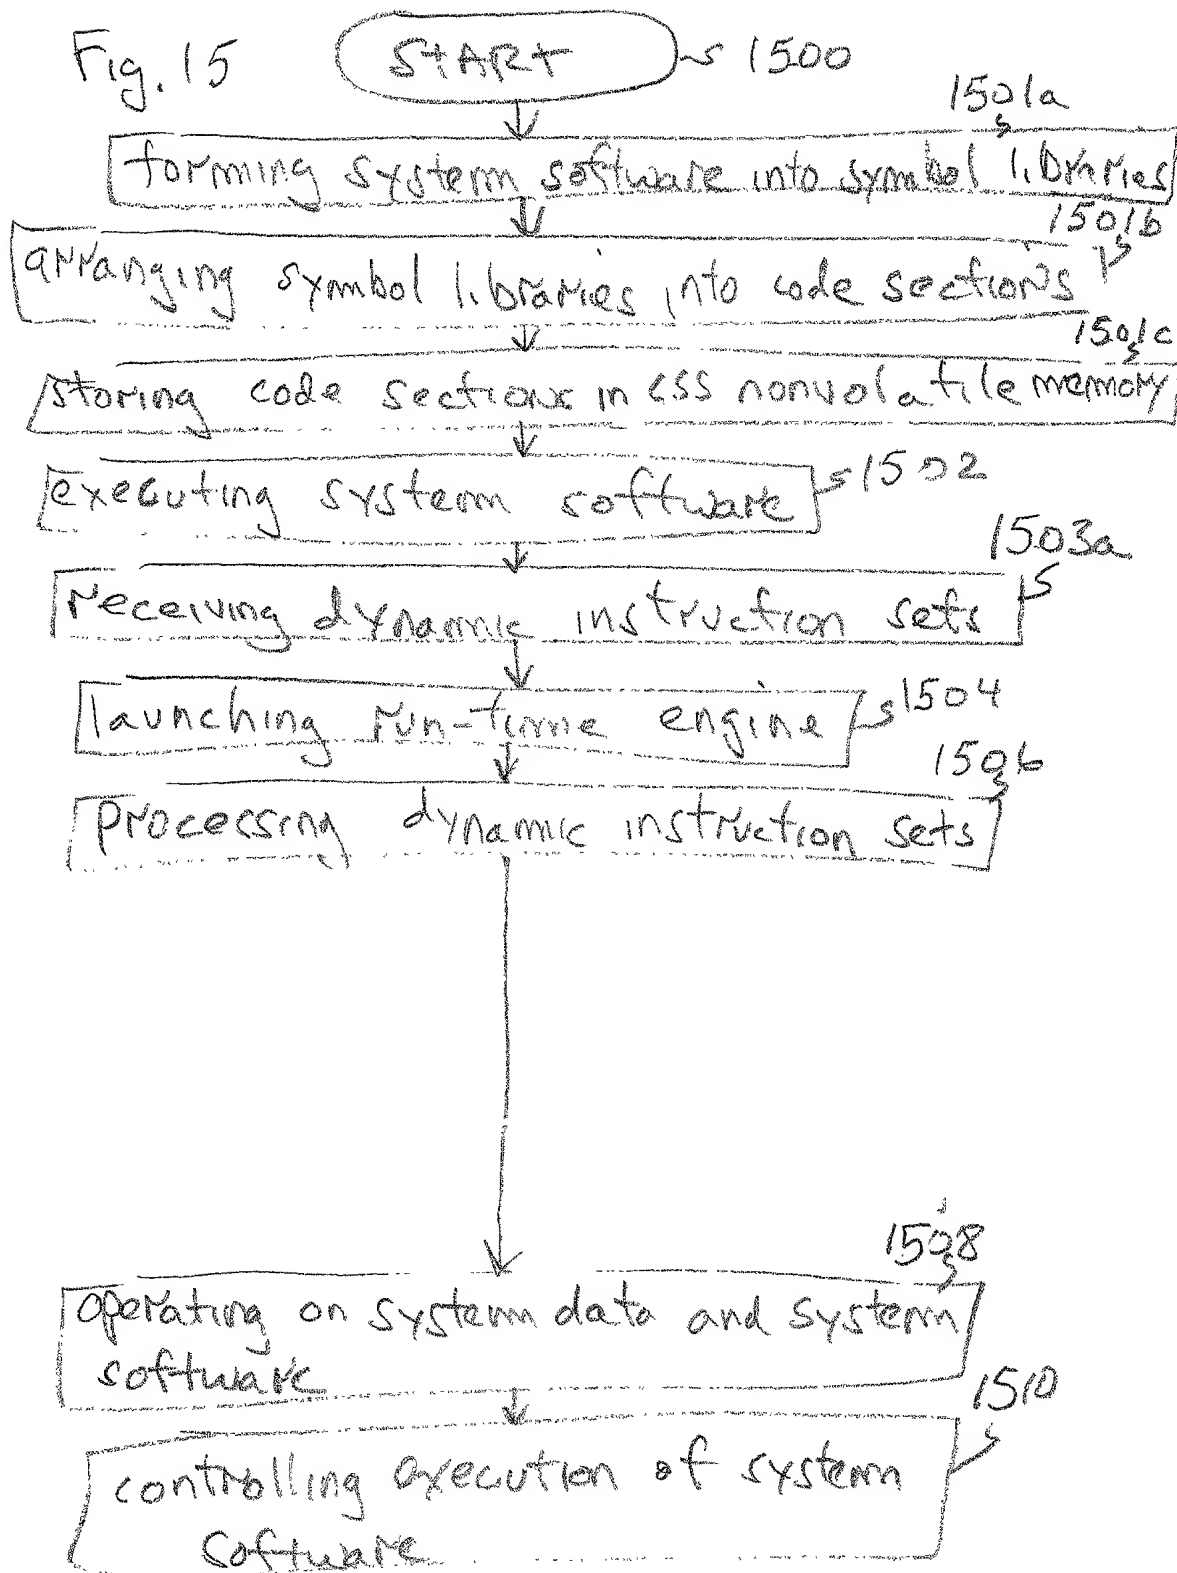 Fig. 15
START 1500
1501a
forming system software into symbol libraries
1501b
arranging symbol libraries into code sections
1501c
storing code sections in CSS nonvolatile memory
executing system software 1502
1503a
receiving dynamic instruction sets
launching run-time engine 1504
1506
processing dynamic instruction sets
1508
operating on system data and system
software
1510
controlling execution of system
software